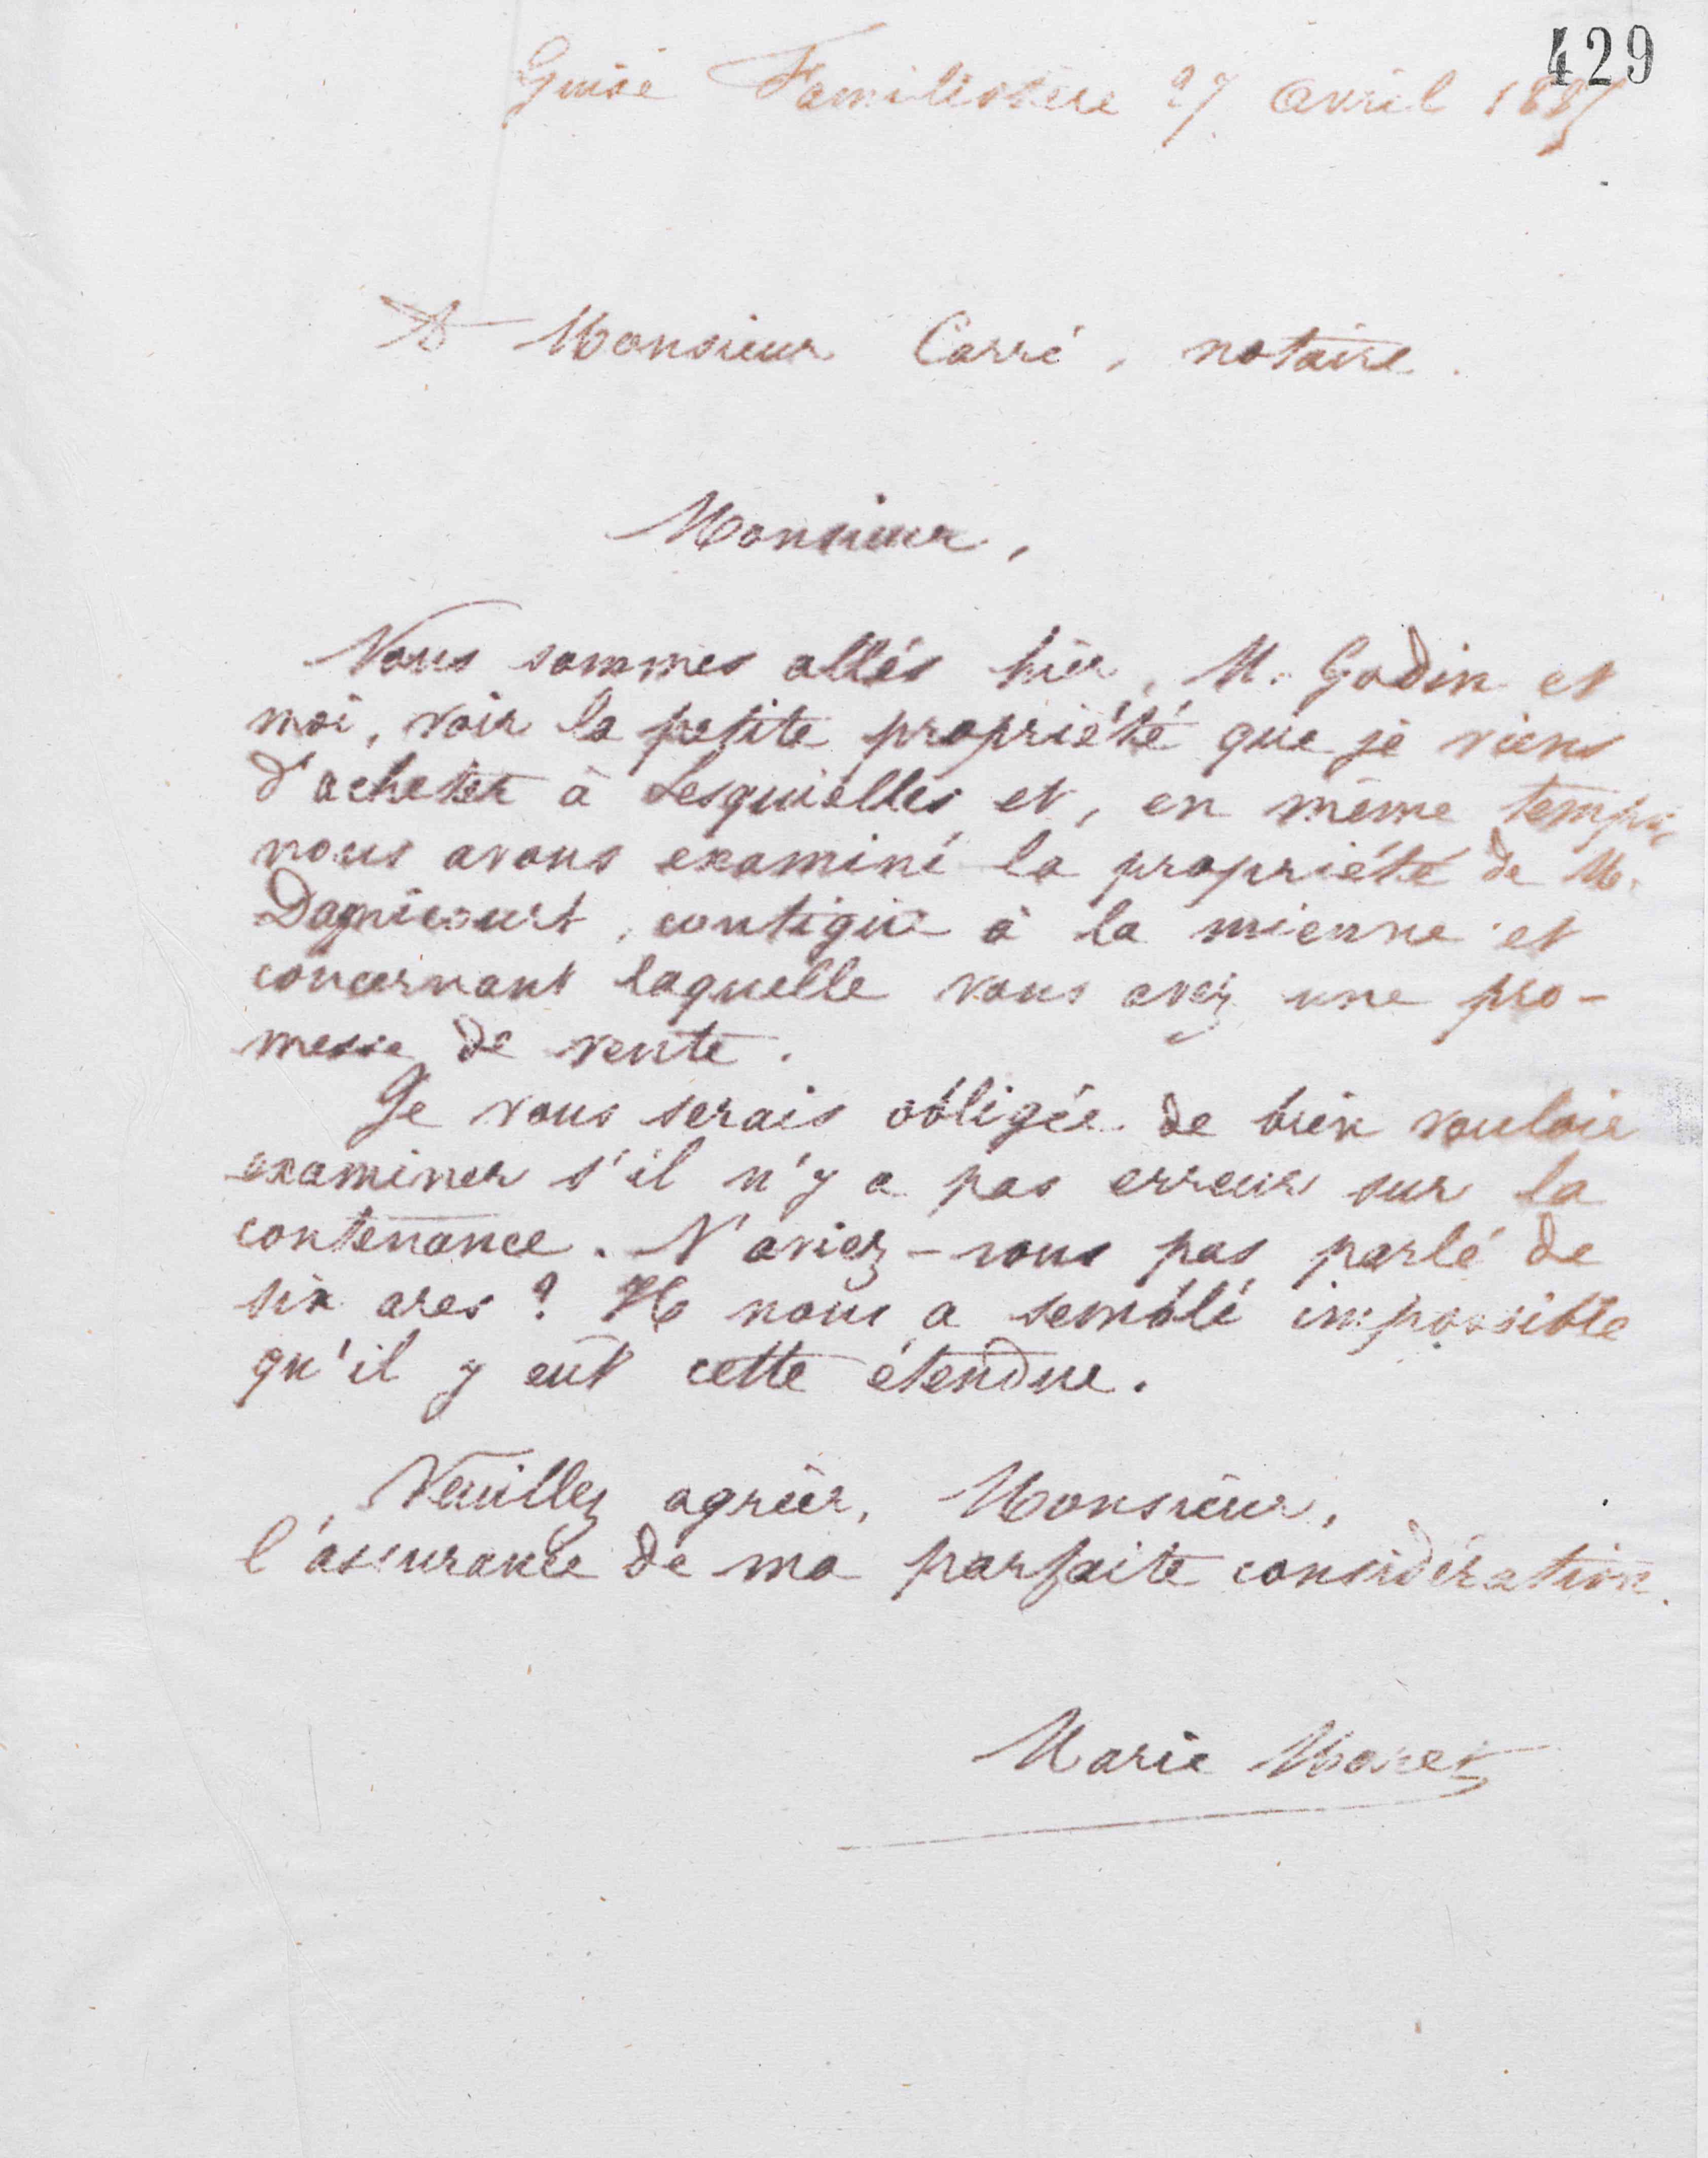 429
Guise Familistère 27 avril
A Monsieur Carré, notaire.
Monsieur,
Nous sommes allés hier, M. Godin et
moi, voir la petite propriété que je viens
d'acheter à Lesquielles et, en même temps,
nous avons examiné la propriété de M.
contiguë à la mienne et
concernant laquelle vous avez une pro-
messe de vente.
Je vous serais obligée de bien vouloir
examiner s'il n'y a pas erreur sur la
contenance. N'aviez-vous pas parlé de
six ares ? Il nous a semblé impossible
qu'il y eût cette étendue.
Veuillez agréer, Monsieur,
l'assurance de ma parfaite considération.
Marie Moret